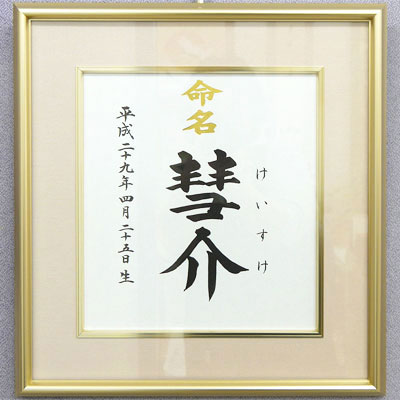 命名
けいすけ
彗介
平成二十九年四月二十五日生